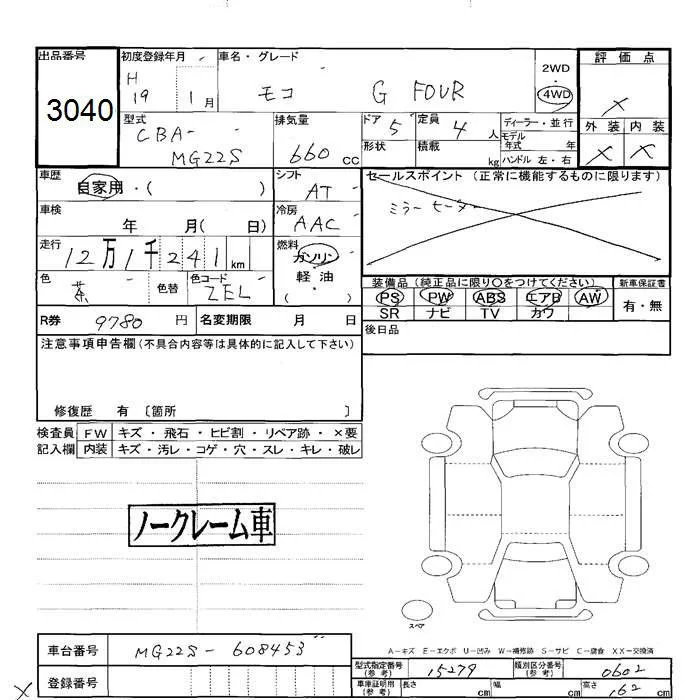 出品番号 初度登録年月 車名・グレード 2WD 評価点
3040 H 19 1月 モコ G FOUR 4WD ×
型式 排気量 ドア 定員 ディーラー・並行 外装 内装
CBA- MG22S 660 CC 5 4人 モデル年式 年 × ×
形状 積載 kg ハンドル 左・右
車歴 自家用・( ) シフト AT セールスポイント(正常に機能するものに限ります)
車検 年 月( 日) 冷房 AAC ミラーヒーター
走行 12万1千241km 燃料 ガソリン
軽・油
色 茶 色替 色コード ZEL ( )
装備品(純正品に限り○をつけてください) 新車保証書
PS PW ABS エアB AW 有・無
SR ナビ TV カワ
R券 9780円 名変期限 月 日 後日品
注意事項申告欄(不具合内容等は具体的に記入して下さい)
修復歴 有 〔箇所 〕
検査員 FW キズ・飛石・ヒビ割・リペア跡・×要
記入欄 内装 キズ・汚レ・コゲ・穴・スレ・キレ・破レ
ノークレーム車
スペア
A-キズ E-エクボ U-凹み W-補修跡 S-サビ C-腐食 XX-交換済
車台番号 MG22S-608453 型式指定番号(参考) 15279 類別区分番号(参考) 0602
× 登録番号 車庫証明用(参考) 長さ cm 幅 cm 高さ 62 cm